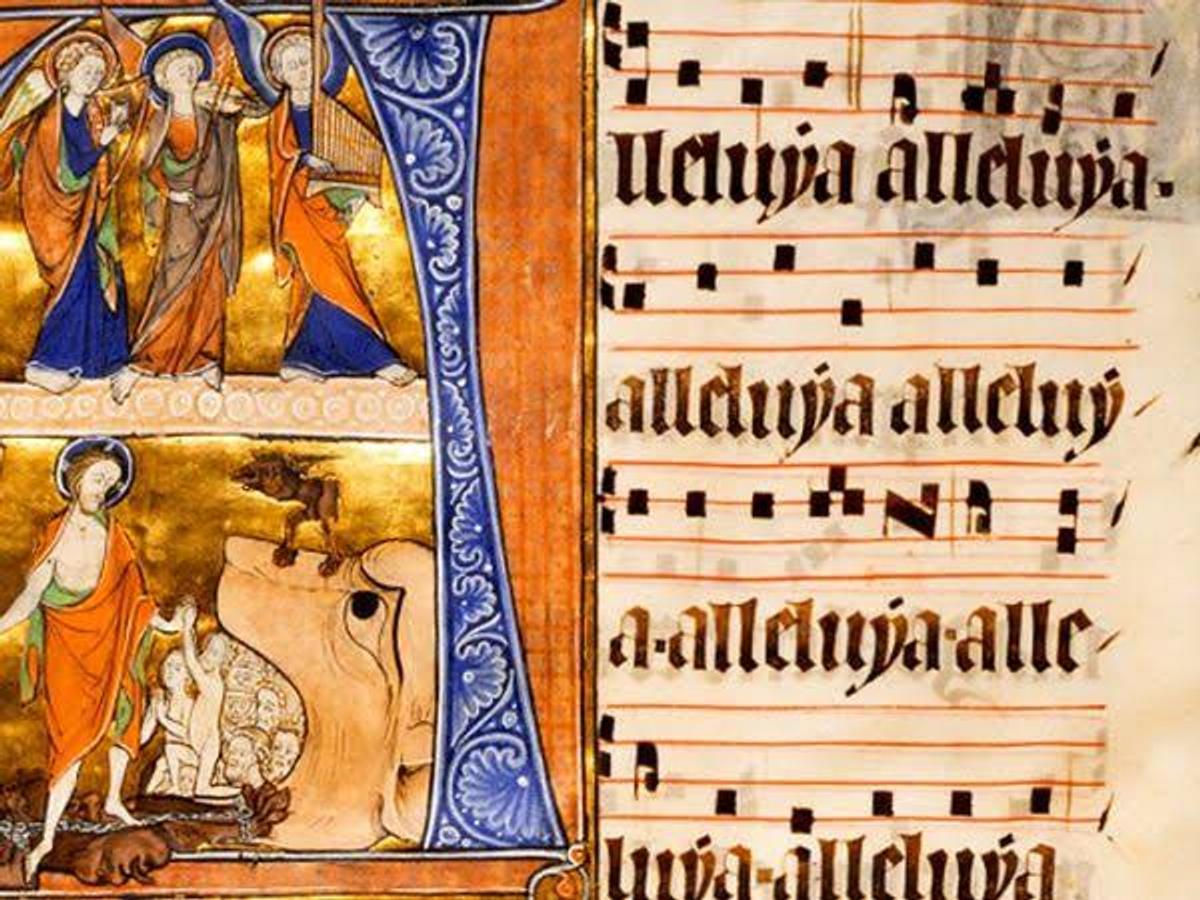 lleluẏa alleluẏa.
alleluẏa alleluẏ
a·alleluẏa·alle
luẏa·alleluẏa